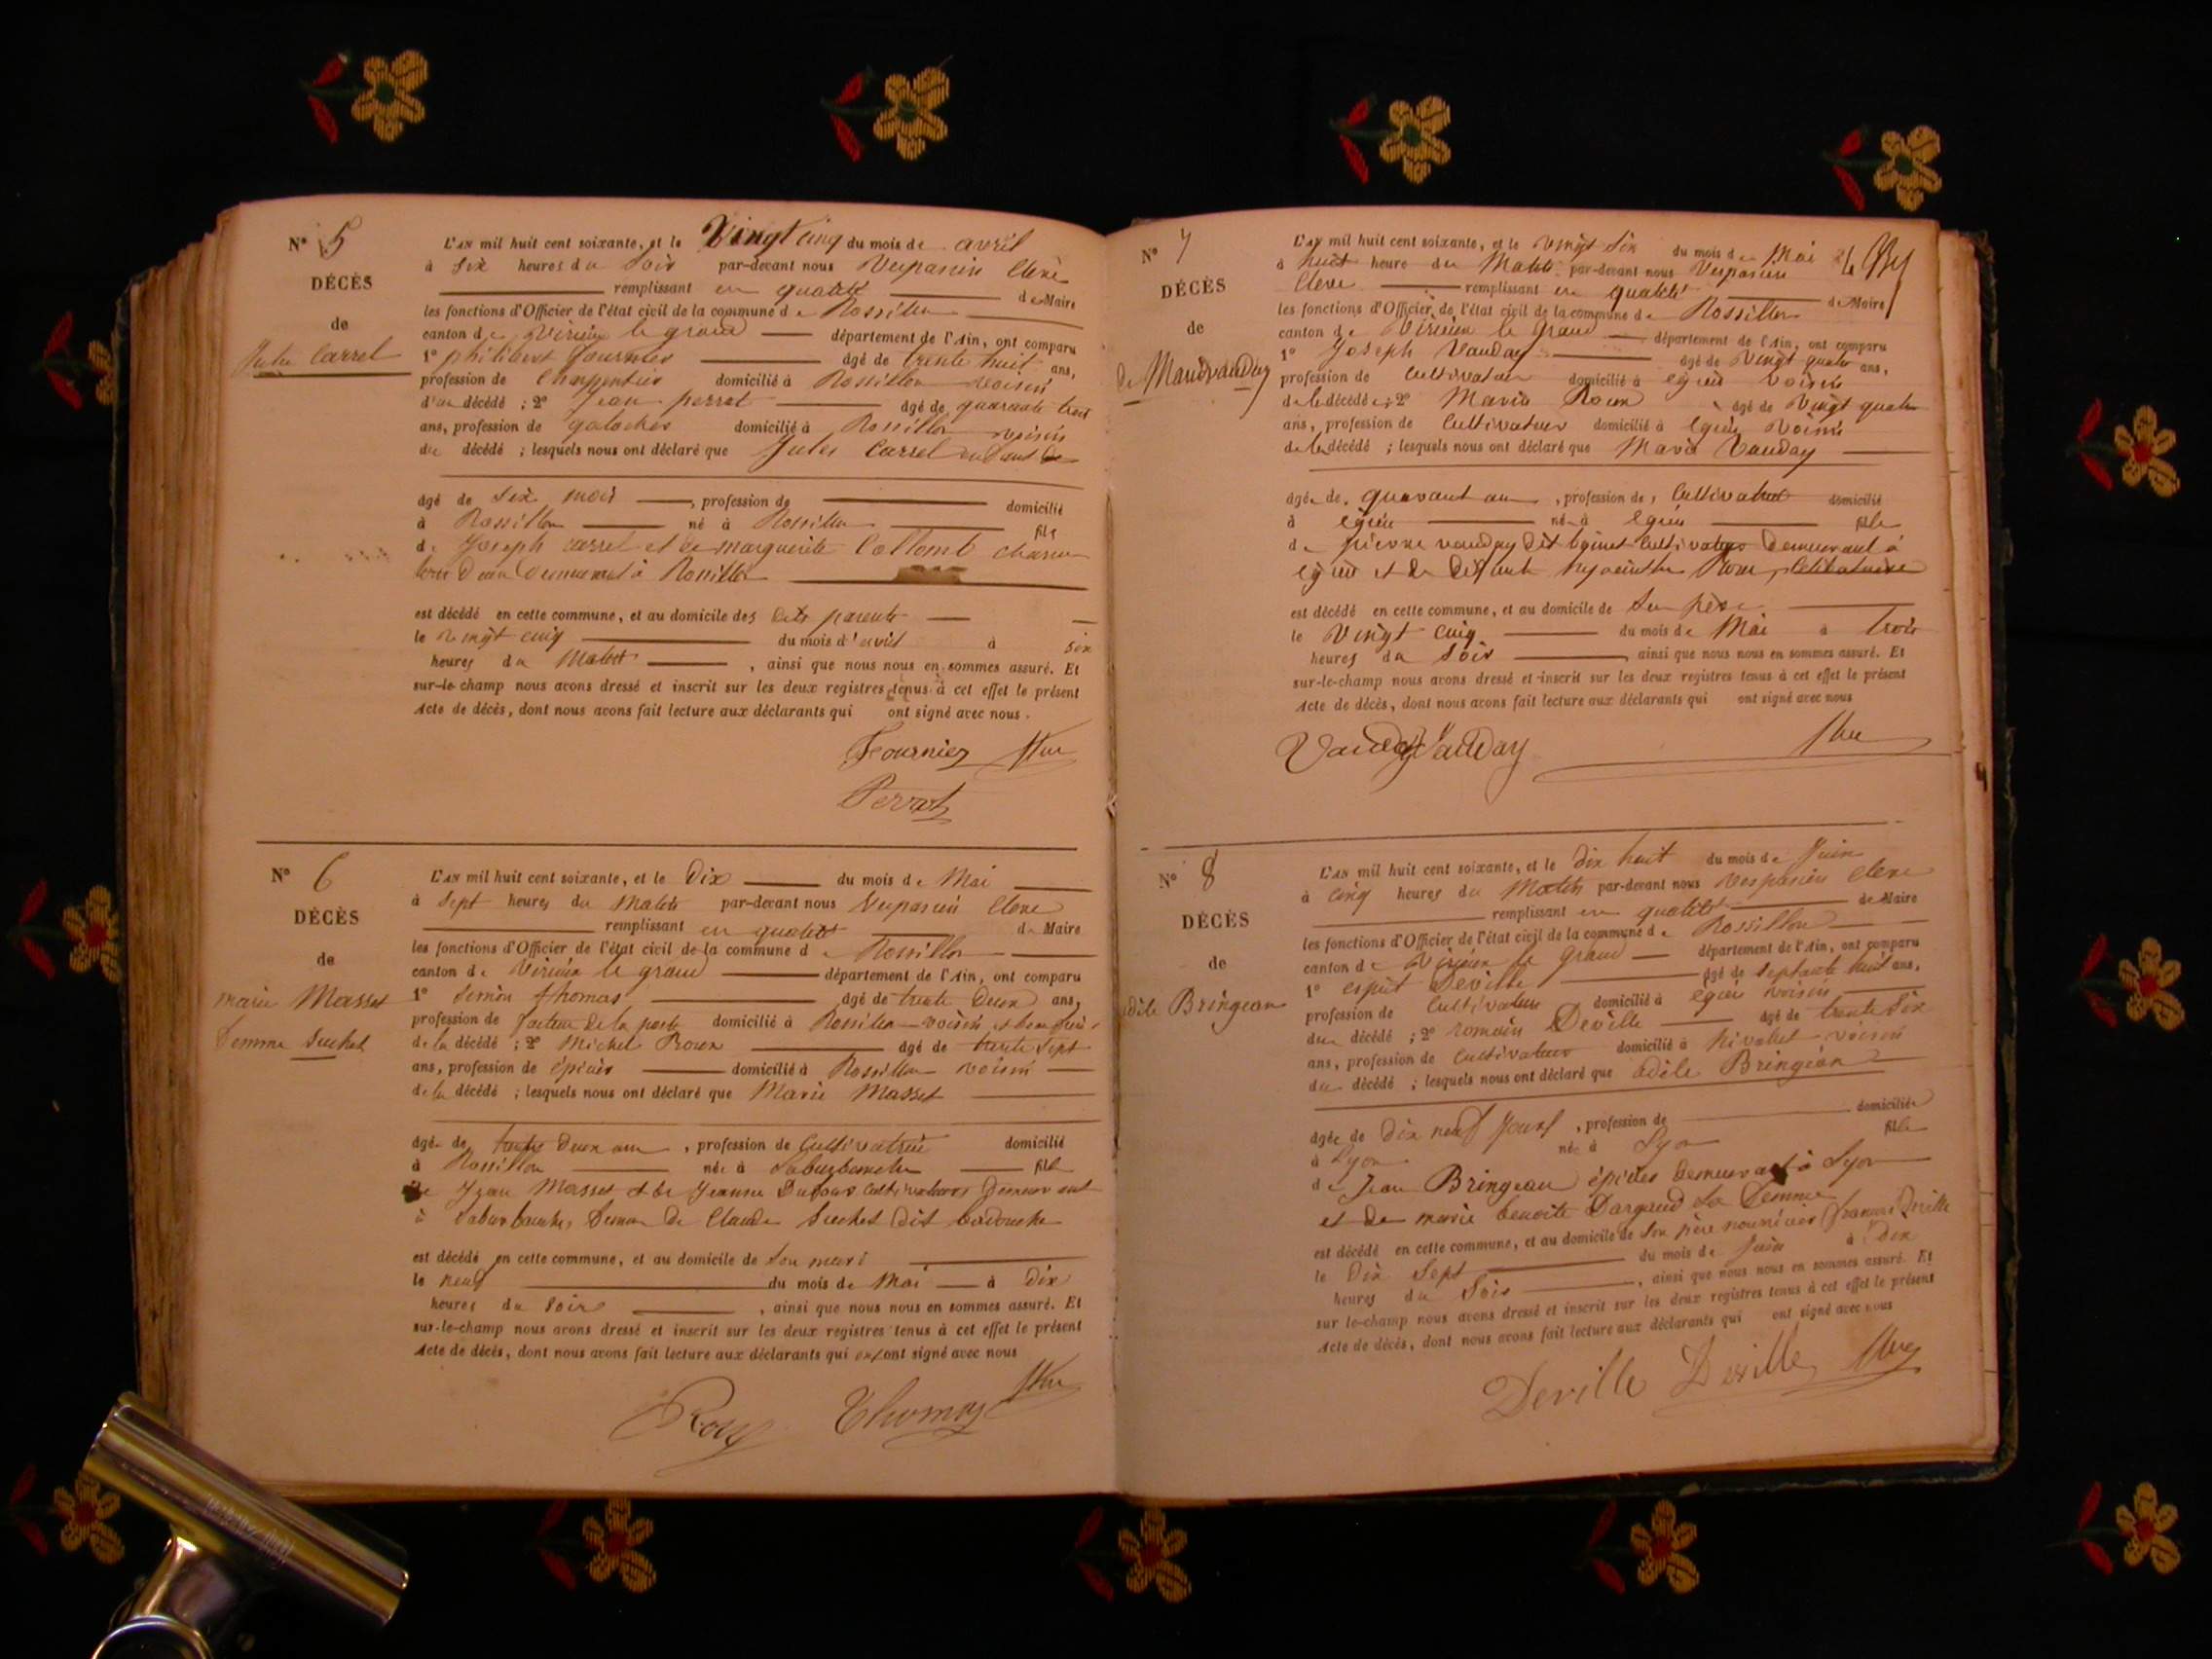 N° 5
DÉCÈS
de
Jules Carrel
L'AN mil huit cent soixante, et le Vingt cinq du mois de avril
à six heures du soir par-devant nous Vespasien Clerc
remplissant en qualité de Maire
les fonctions d'Officier de l'état civil de la commune de Rossillon
canton de Virieu le grand département de l'Ain, ont comparu
1° philibert fournier âgé de trente huit ans,
profession de Charpentier domicilié à Rossillon voisin
du décédé ; 2° Jean perrat âgé de quarante trois
ans, profession de galocher domicilié à Rossillon voisin
du décédé ; lesquels nous ont déclaré que Jules Carrel enfant de
âgé de six mois , profession de domicilié
à Rossillon né à Rossillon fils
de Joseph carrel et de marguerite Collomb
demeurant à Rossillon
est décédé en cette commune, et au domicile des dits parents
le vingt cinq du mois d'avril à six
heures du Matin , ainsi que nous nous en sommes assuré. Et
sur-le-champ nous avons dressé et inscrit sur les deux registres tenus à cet effet le présent
Acte de décès, dont nous avons fait lecture aux déclarants qui ont signé avec nous.
Fournier
Perrat
N° 6
DÉCÈS
de
marie Masset
femme Suchet
L'AN mil huit cent soixante, et le Dix du mois de Mai
à Sept heures du Matin par-devant nous Vespasien Clerc
remplissant en qualité de Maire
les fonctions d'Officier de l'état civil de la commune de Rossillon
canton de Virieu le grand département de l'Ain, ont comparu
1° Simon thomas âgé de trente Deux ans,
profession de facteur de la poste domicilié à Rossillon voisin et beau frère
de la décédé ; 2° Michel Roux âgé de trente sept
ans, profession de épicier domicilié à Rossillon voisin
de la décédé ; lesquels nous ont déclaré que Marie Masset
âgée de trente Deux ans , profession de Cultivatrice domicilié
à Rossillon née à fille
de Jean Masset et de Jeanne Dufour cultivateurs Demeurant
à femme de Claude Suchet dit
est décédé en cette commune, et au domicile de son mari
le neuf du mois de Mai à dix
heures du soir , ainsi que nous nous en sommes assuré. Et
sur-le-champ nous avons dressé et inscrit sur les deux registres tenus à cet effet le présent
Acte de décès, dont nous avons fait lecture aux déclarants qui ont signé avec nous
Roux Thomas
N° 7
DÉCÈS
de Marie vauday
L'AN mil huit cent soixante, et le vingt six du mois de Mai
à huit heure du Matin par-devant nous Vespasien
Clerc remplissant en qualité de Maire
les fonctions d'Officier de l'état civil de la commune de Rossillon
canton de Virieu le Grand département de l'Ain, ont comparu
1° Joseph Vauday âgé de Vingt quatre ans,
profession de Cultivateur domicilié à égieu voisin
de la décédée ; 2° Roux âgé de Vingt quatre
ans, profession de Cultivateur domicilié à égieu voisin
de la décédé ; lesquels nous ont déclaré que Maria Vauday
âgée de quarant ans , profession de Cultivateur domicilié
à égieu née à égieu fille
de pierre vauday dit cultivateur Demeurant à
égieu et de défunte hyacinthe Roux, Célibataire
est décédé en cette commune, et au domicile de Son père
le Vingt Cinq du mois de Mai à trois
heures du Soir , ainsi que nous nous en sommes assuré. Et
sur-le-champ nous avons dressé et inscrit sur les deux registres tenus à cet effet le présent
Acte de décès, dont nous avons fait lecture aux déclarants qui ont signé avec nous
Vauday Vauday
N° 8
DÉCÈS
de
adèle Bringeon
L'AN mil huit cent soixante, et le dix huit du mois de Juin
à cinq heures du Matin par-devant nous Vespasien Clerc
remplissant en qualité de Maire
les fonctions d'Officier de l'état civil de la commune de Rossillon
canton de Virieu le Grand département de l'Ain, ont comparu
1° esprit Deville âgé de septante huit ans,
profession de Cultivateur domicilié à égieu voisin
du décédé ; 2° romain Deville âgé de trente six
ans, profession de Cultivateur domicilié à voisin
du décédé ; lesquels nous ont déclaré que adèle Bringeon
âgée de Dix neuf Jours , profession de domiciliée
à Lyon née à Lyon fille
de Jean Bringeau épicier Demeurant à Lyon
et de marie benoite Dargaud Sa femme
est décédé en cette commune, et au domicile de son père nourricier Deville
le Dix Sept du mois de Juin à Dix
heures du Soir , ainsi que nous nous en sommes assuré. Et
sur le-champ nous avons dressé et inscrit sur les deux registres tenus à cet effet le présent
Acte de décès, dont nous avons fait lecture aux déclarants qui ont signé avec nous
Deville Deville